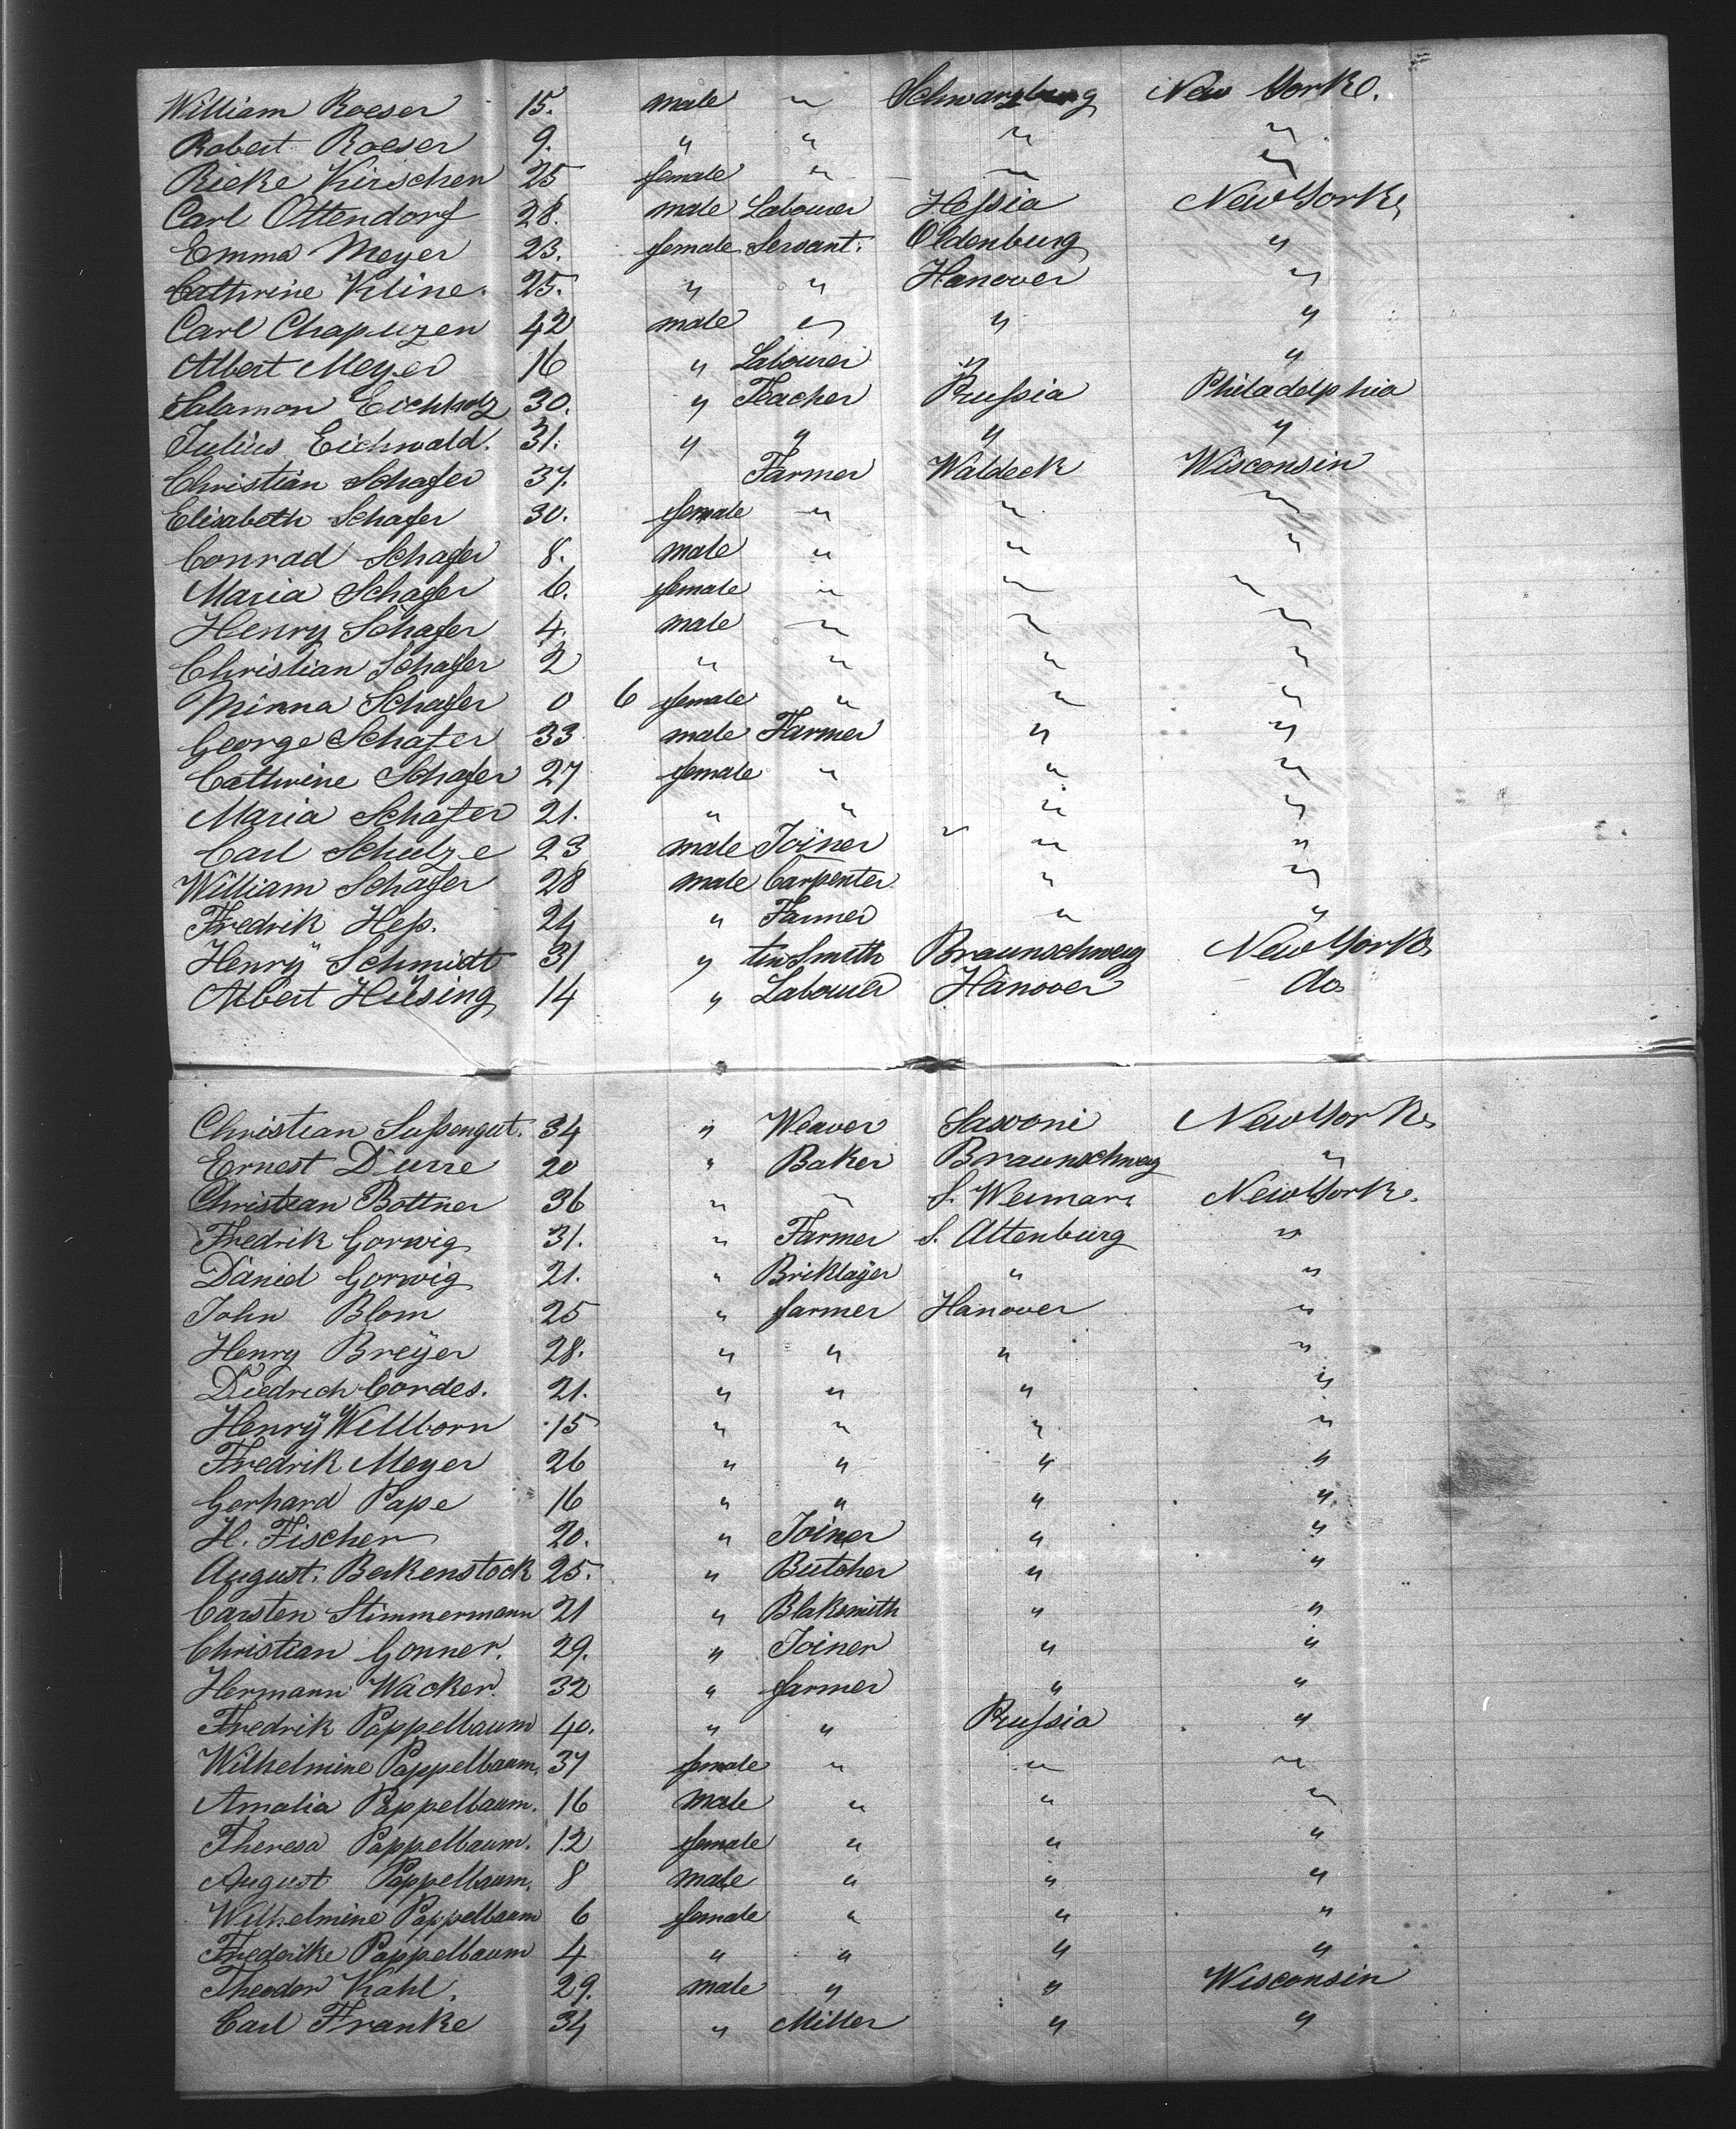 William Roeser 15. male " Schwarzburg New York.
Robert Roeser 9. " " " "
Rieke Kirschen 25 female " " "
Carl Ottendorf 28. male Labourer Heſsia New York,
Emma Meyer 23. female Servant. Oldenburg "
Cathrine Kline. 25. " " Hanover "
Carl Chapuzen 42 male " " "
Albert Meyer 16 " Labourer " "
Salamon Eichholz 30. " Teacher Pruſsia Philadelphia
Julius Eichwald. 31. " " " "
Christian Schafer 37. Farmer Waldeck Wisconsin
Elisabeth Schafer 30. female " " "
Conrad Schafer 8. male " " "
Maria Schafer 6. female " " "
Henry Schafer 4. male " " "
Christian Schafer 2 " " " "
Minna Schafer 0 6 female " " "
George Schafer 33 male Farmer " "
Cathrine Schafer 27 female " " "
Maria Schafer 21. " " " "
Carl Schulze 23 male Joiner " " "
William Schafer 28 male Carpenter " "
Fredrik Heſs. 24 " Farmer " "
Henry Schmidt 31 " tin Smith Braunschweig New York,
Albert Hüsing 14 " Labourer Hanover do
Christian Sußengut. 34 " Weaver Saxoni New York,
Ernest Durre 20 " Baker Braunschweig "
Christian Bottner 36 " " S. Weimar. New York.
Fredrik Gorwig 31. " Farmer S. Altenburg "
Daniel Gorwig 21. " Briklayer " "
John Blom 25 " farmer Hanover "
Henry Breyer 28. " " " "
Diedrich Cordes. 21. " " " "
Henry Wellborn 15 " " " "
Fredrik Meyer 26 " " " "
Gerhard Pape 16 " " " "
H. Fischer 20. " Joiner " "
August. Berkenstock 25. " Butcher " "
Carsten Stimmermann 21 " Blaksmith " "
Christian Gonner. 29. " Joiner " "
Hermann Wacker. 32 " farmer " "
Fredrik Pappelbaum 40. " " Pruſsia "
Wilhelmine Pappelbaum. 37 female " " "
Amalia Pappelbaum. 16 male " " "
Theresa Pappelbaum. 12 female " " "
August Pappelbaum. 8 male " " "
Wilhelmine Pappelbaum 6 female " " "
Frederike Pappelbaum 4 " " " "
Theodor Kahl. 29. male " " Wisconsin
Carl Franke 34 " Miller " "